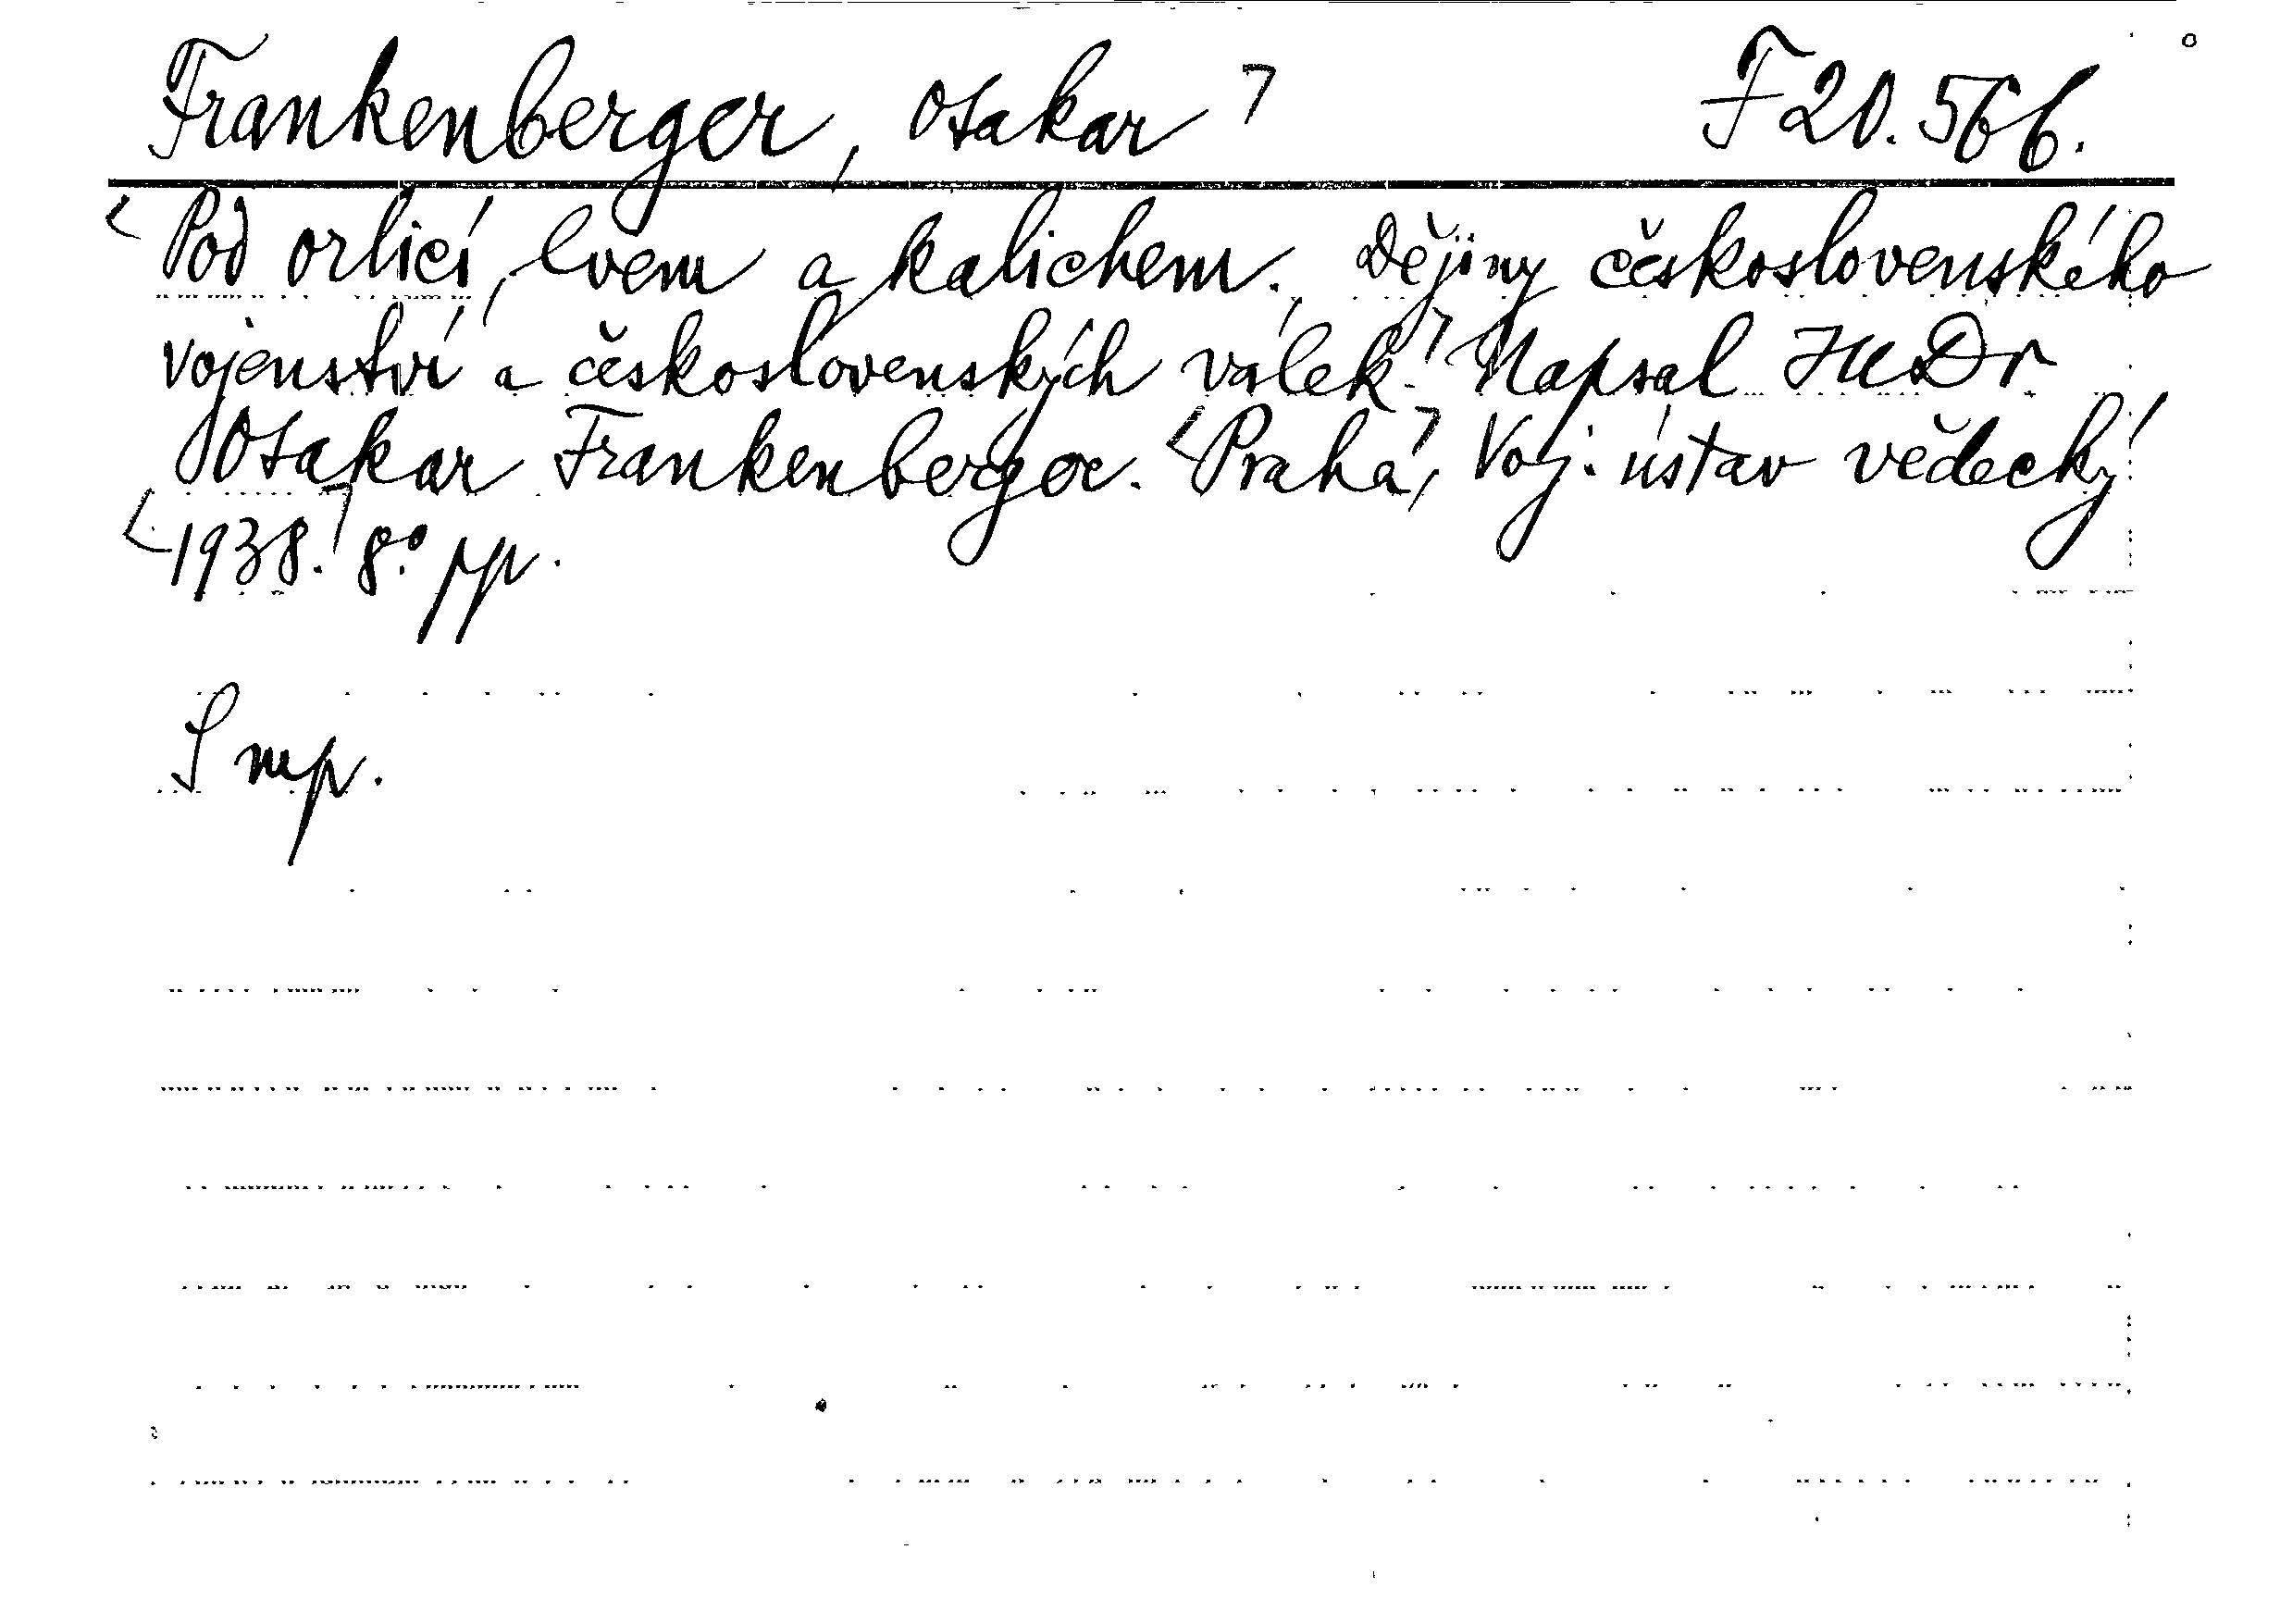 Frankenberger, Otakar F 20.566.
Pod orlicí, lvem a kalichem. Dějiny československého
vojenství a československých válek. Napsal JUDr
Otakar Frankenberger. Praha, Voj. ústav vědecký
1938. 8° pp.